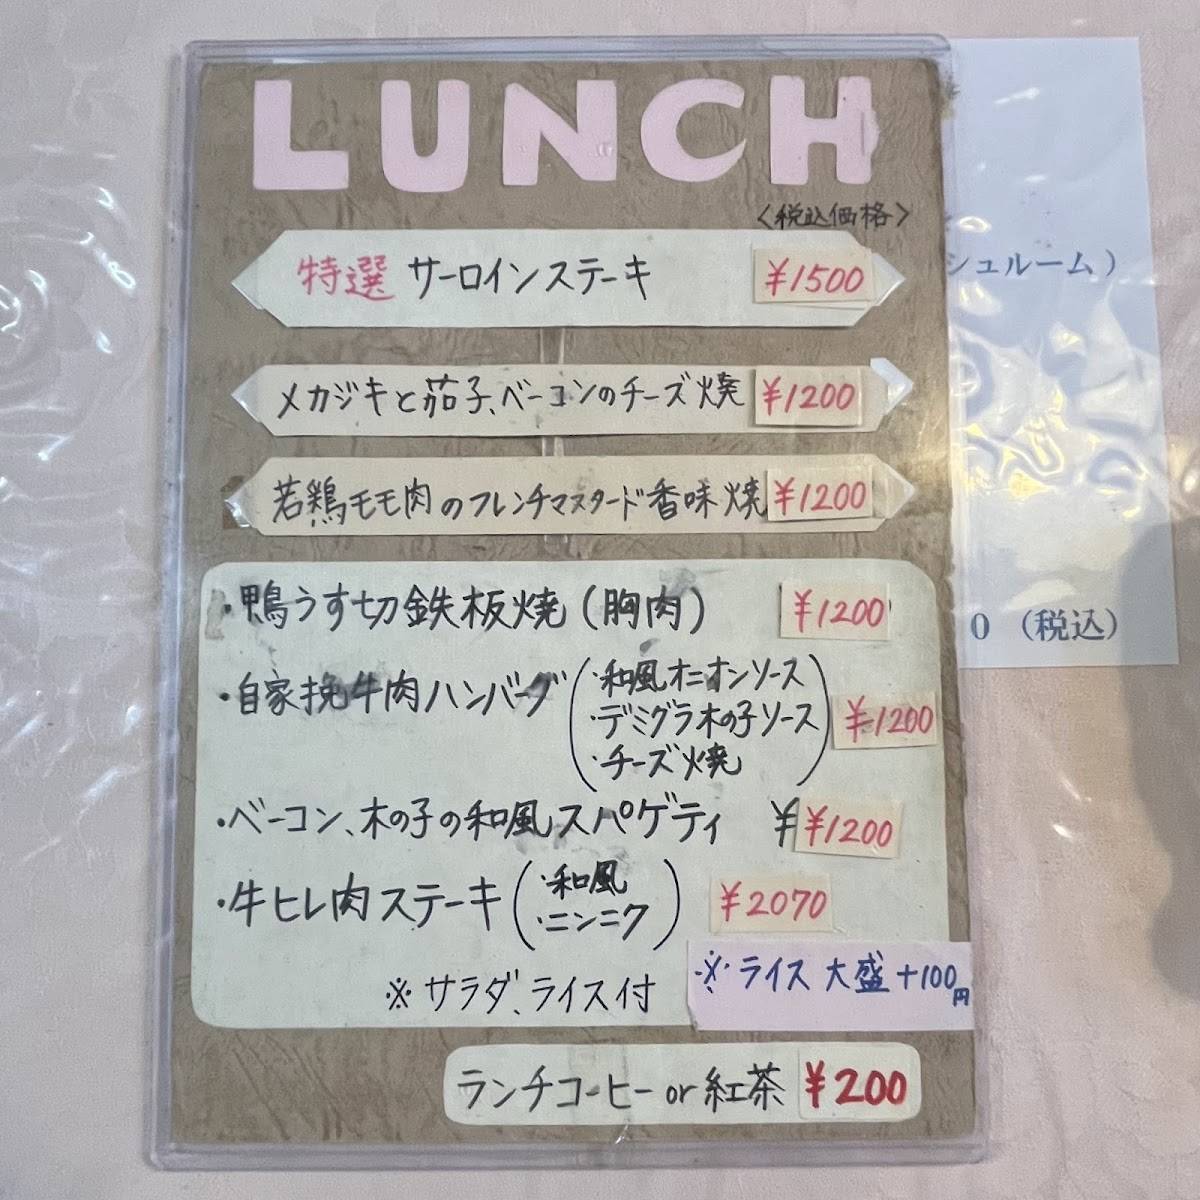 LUNCH
〈税込価格〉
特選 サーロインステーキ ¥1500
メカジキと茄子、ベーコンのチーズ焼 ¥1200
若鶏モモ肉のフレンチマスタード香味焼 ¥1200
・鴨うす切鉄板焼(胸肉) ¥1200
・自家挽牛肉ハンバーグ
・和風オニオンソース
・デミグラ木の子ソース
・チーズ焼
¥1200
・ベーコン、木の子の和風スパゲティ ¥¥1200
・牛ヒレ肉ステーキ
・和風
・ニンニク
¥2070
※サラダ、ライス付
※ライス大盛+100円
ランチコーヒーor紅茶 ¥200
シュルーム)
0 (税込)